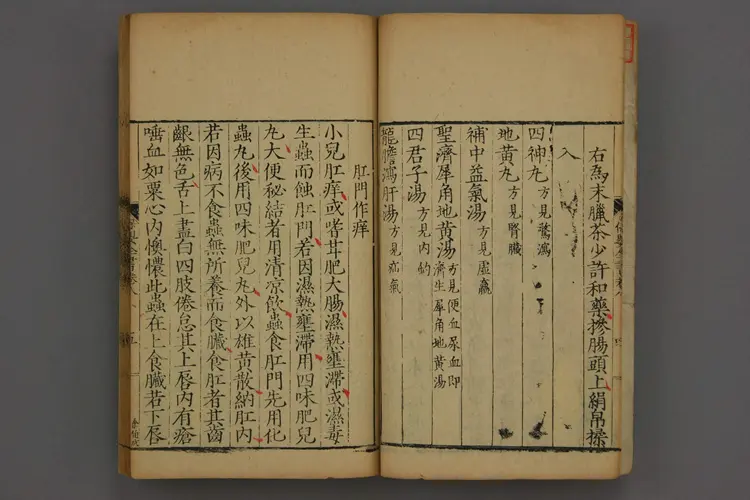 右為末臘茶少許和藥摻腸頭上絹帛揉
入
四神丸方見驚瀉
地黃丸方見腎臟
補中益氣湯方見虛羸
聖濟犀角地黃湯方見便血尿血即
濟生犀角地黃湯
四君子湯方見內釣
龍膽瀉肝湯方見疝氣
肛門作痒
小兒肛痒或嗜甘肥大腸濕熱壅滯或濕毒
生蟲而蝕肛門若因濕熱壅滯用四味肥兒
丸大便秘結者用清凉飲蟲食肛門先用化
蟲丸後用四味肥兒丸外以雄黃散納肛內
若因病不食蟲無所養而食臟食肛者其齒
齦無色舌上盡白四肢倦怠其上唇內有瘡
唾血如粟心內懊憹此蟲在上食臟若下唇